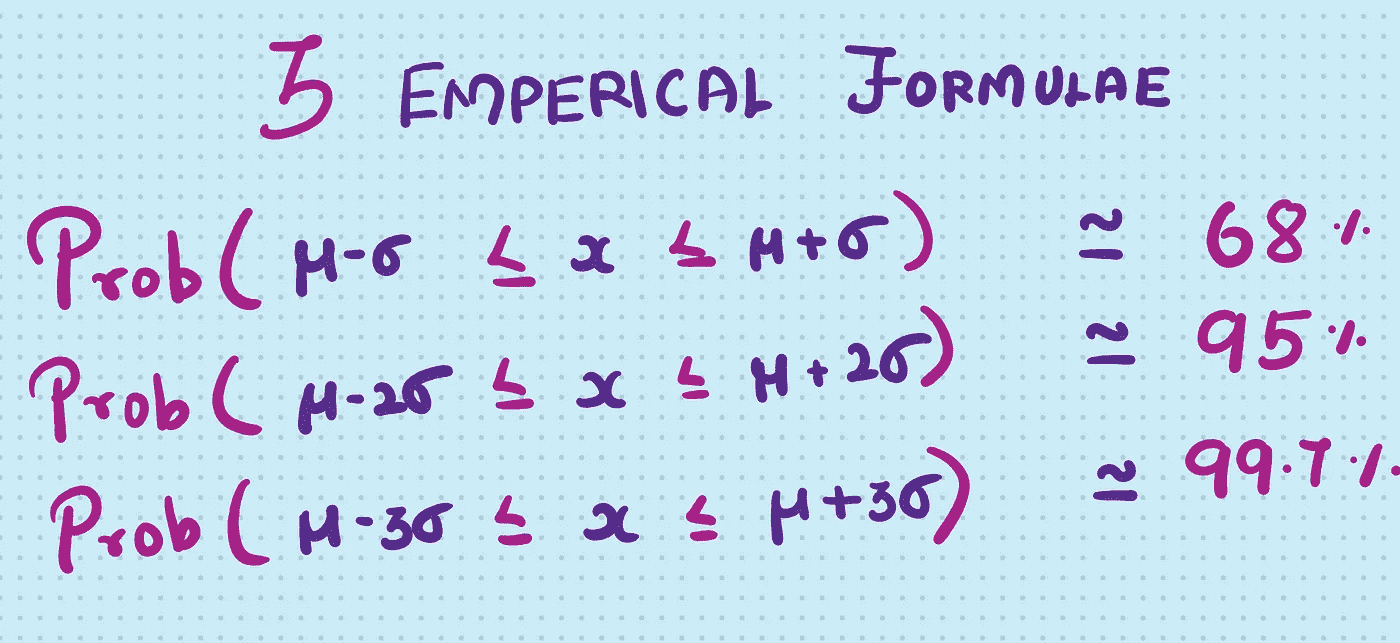 3 EMPERICAL FORMULAE
Prob( μ-σ ≤ x ≤ μ+σ) ≃ 68%
Prob( μ-2σ ≤ x ≤ μ+2σ) ≃ 95%
Prob( μ-3σ ≤ x ≤ μ+3σ) ≃ 99.7%